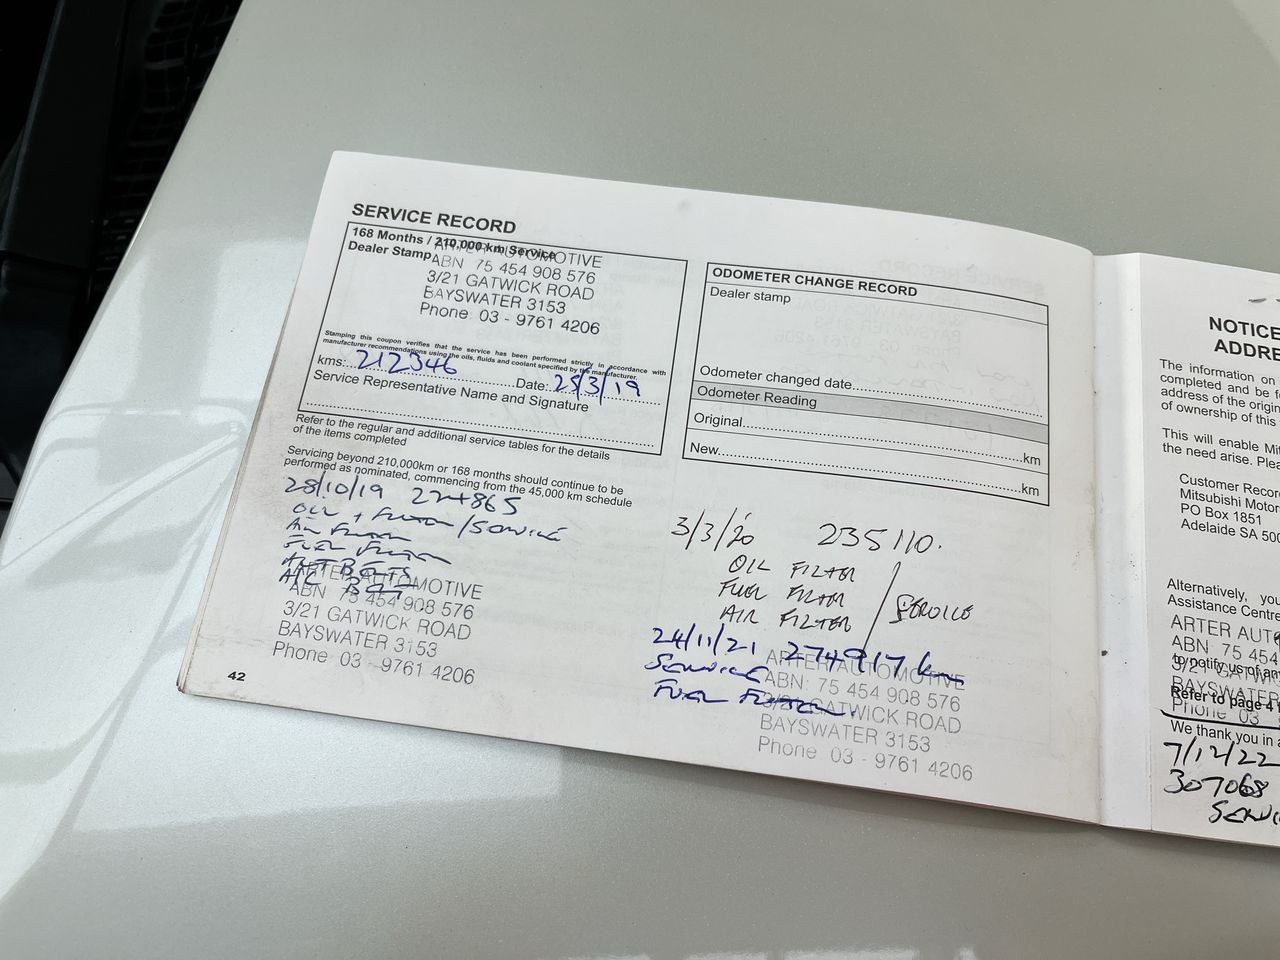 SERVICE RECORD
168 Months / 210,000 km Service
Dealer Stamp
ARTER AUTOMOTIVE
ABN 75 454 908 576
3/21 GATWICK ROAD
BAYSWATER 3153
Phone 03 - 9761 4206
Stamping this coupon verifies that the service has been performed strictly in accordance with
manufacturer recommendations using the oils, fluids and coolant specified by the manufacturer.
kms: 212346 Date: 25/3/19
Service Representative Name and Signature
Refer to the regular and additional service tables for the details
of the items completed
Servicing beyond 210,000km or 168 months should continue to be
performed as nominated, commencing from the 45,000 km schedule
28/10/19 224865
OIL + FILTER / SERVICE
AIR FILTER
FUEL FILTER
BELTS
A/C BELT
ARTER AUTOMOTIVE
ABN 75 454 908 576
3/21 GATWICK ROAD
BAYSWATER 3153
Phone 03 - 9761 4206
42
ODOMETER CHANGE RECORD
Dealer stamp
Odometer changed date
Odometer Reading
Original km
New km
3/3/20 235110.
OIL FILTER
FUEL FILTER / SERVICE
AIR FILTER
24/11/21 274917 km
SERVICE
FUEL FILTER
ARTER AUTOMOTIVE
ABN 75 454 908 576
3/21 GATWICK ROAD
BAYSWATER 3153
Phone 03 - 9761 4206
NOTICE
ADDRE
The information on
completed and be
address of the origin
of ownership of this
This will enable Mit
the need arise. Plea
Customer Recor
Mitsubishi Motor
PO Box 1851
Adelaide SA 500
Alternatively, you
Assistance Centre
ARTER AUT
ABN 75 454
to notify us of any
3/21 GATWI
BAYSWATER
Refer to page 4
Phone 03
We thank you in a
7/12/22
307068
SERVI